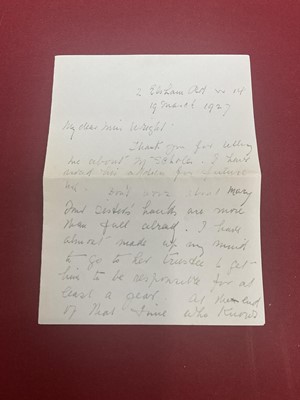 2 Elsham Rd W 14
19 March 1927
My dear Miss Wright
Thank you for telling
me about Mr Scholes. I have
his address for future
use. Don't worry about Mary
Dow Sister's hands are more
than full abroad. I have
almost made up my mind
to go to her trustee & get
him to be responsible for at
least a year. At the end
of that time who knows